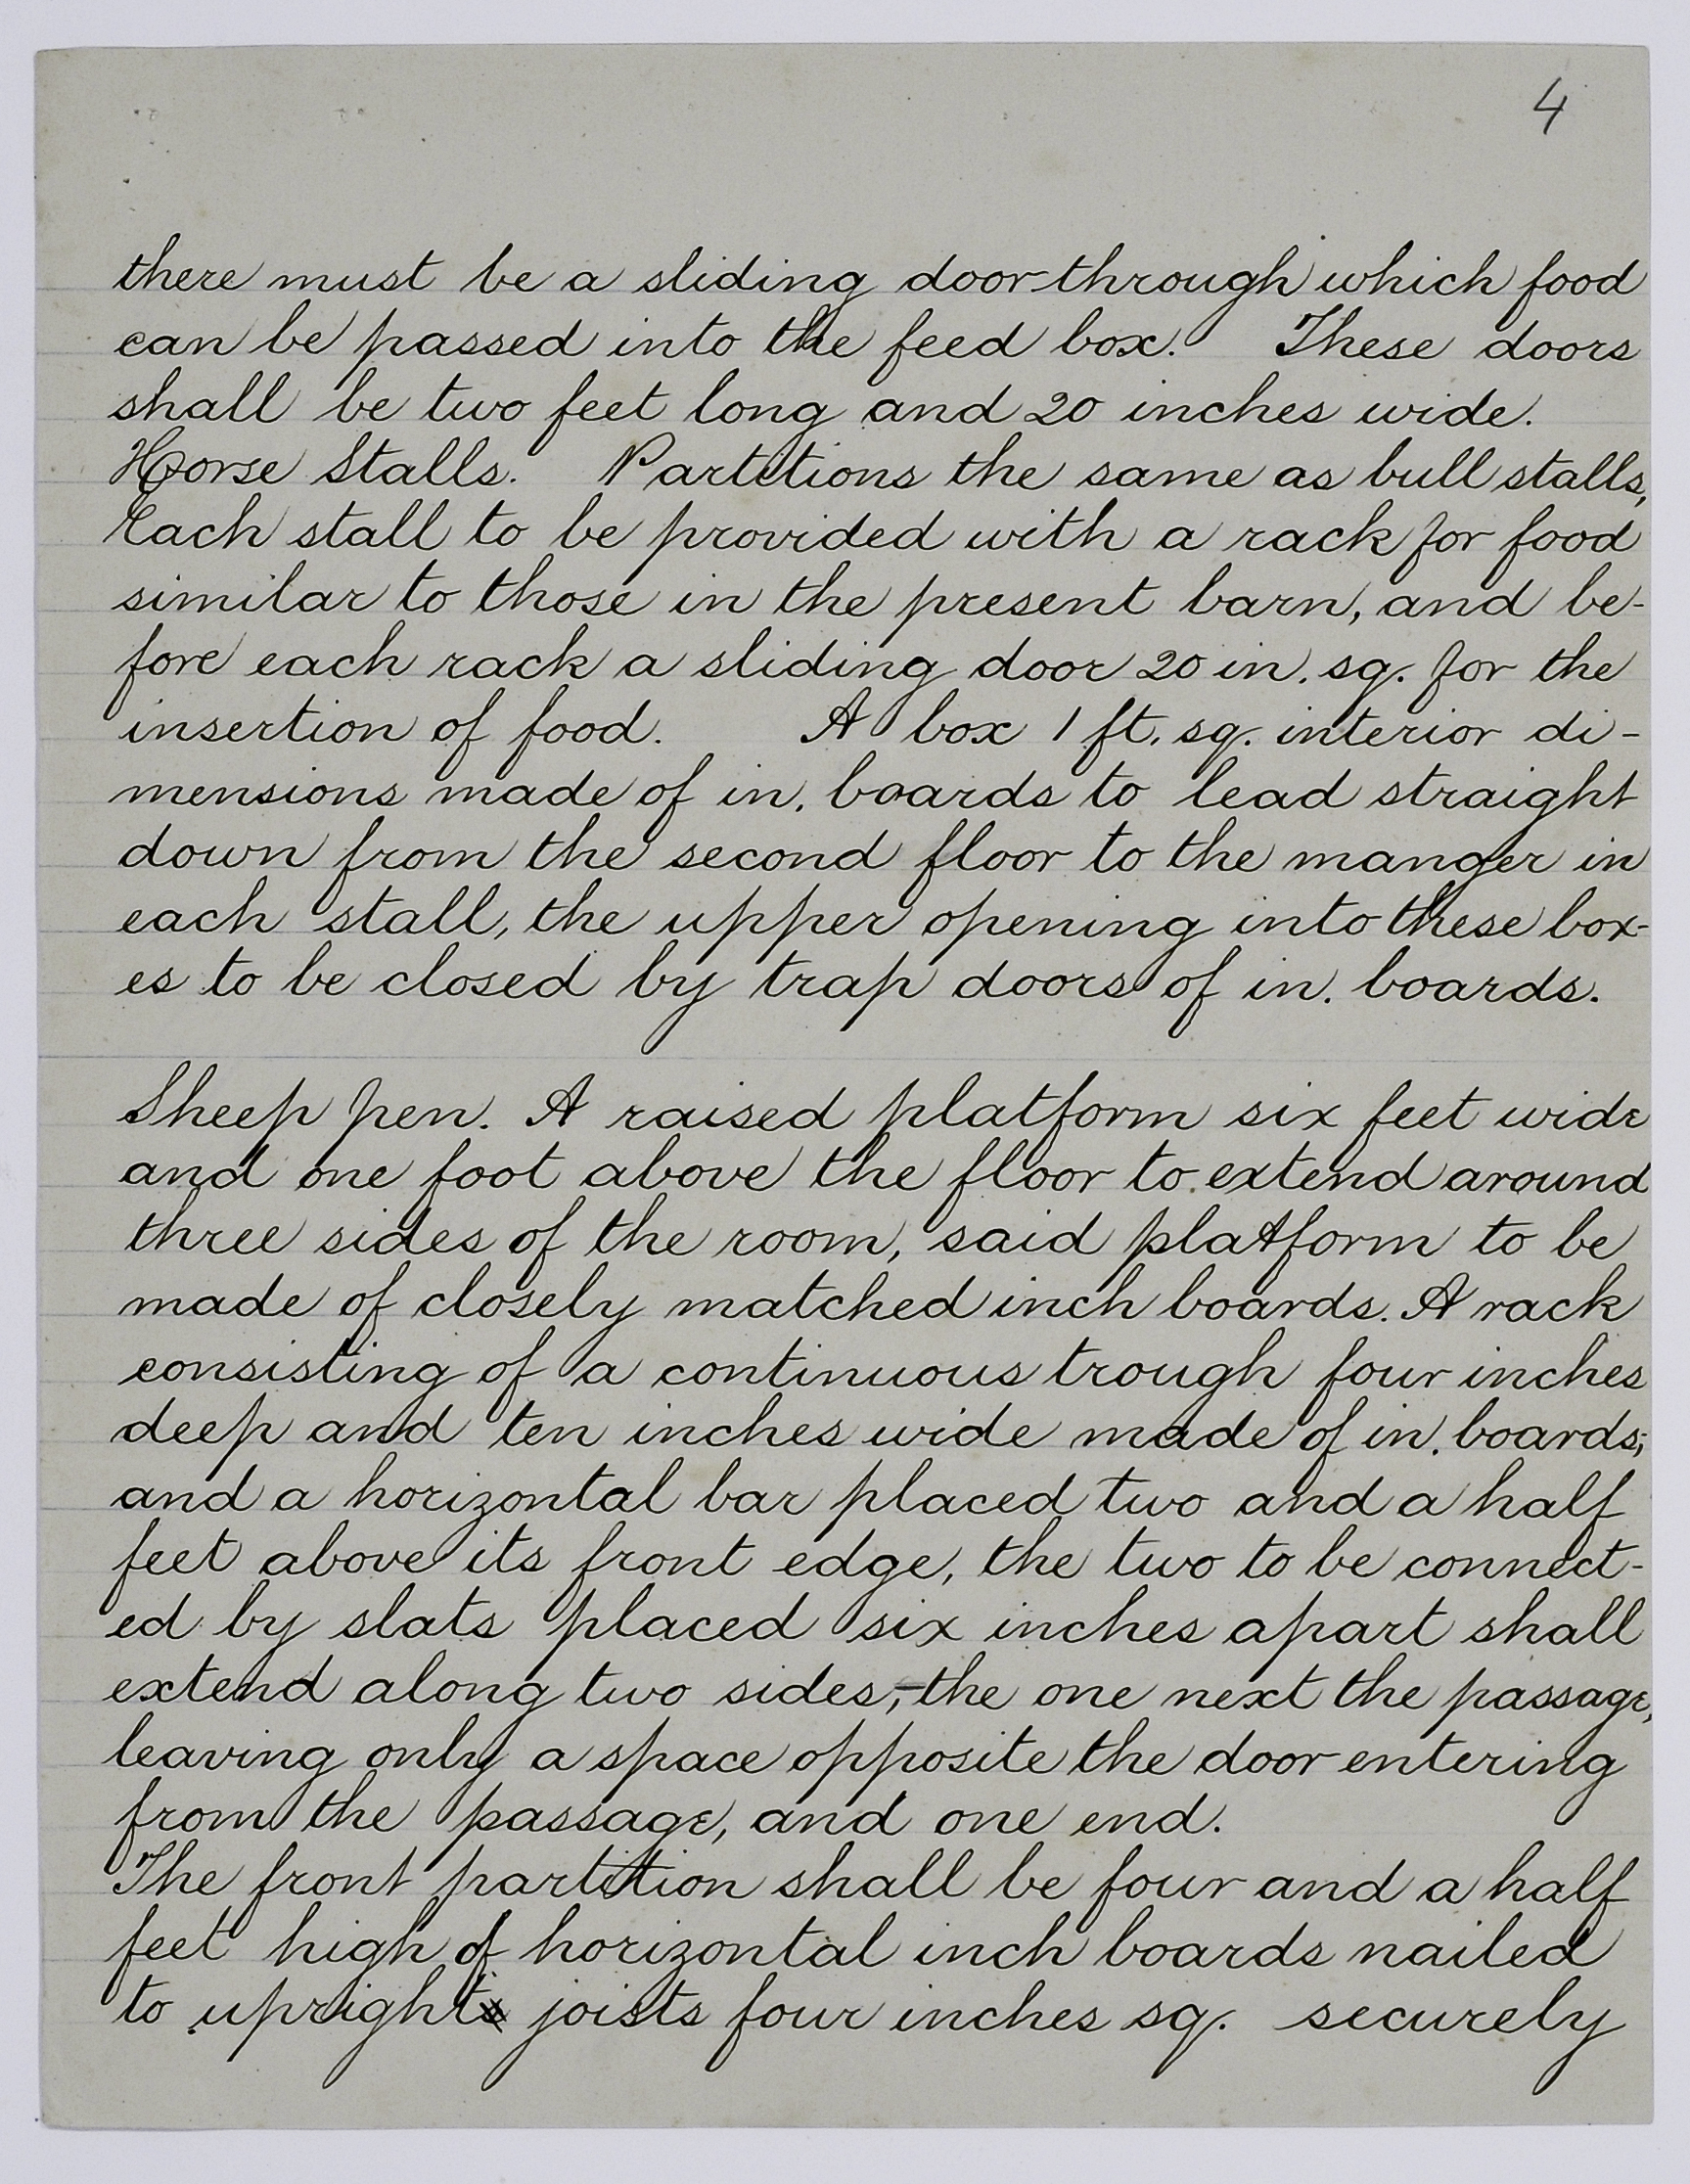 4
there must be a sliding door through which food
can be passed into the feed box. These doors
shall be two feet long and 20 inches wide.
Horse Stalls. Partitions the same as bull stalls,
Each stall to be provided with a rack for food
similar to those in the present barn, and be-
fore each rack a sliding door 20 in. sq. for the
insertion of food. A box 1 ft. sq. interior di-
mensions made of in. boards to lead straight
down from the second floor to the manger in
each stall, the upper opening into these box-
es to be closed by trap doors of in. boards.
Sheep pen. A raised platform six feet wide
and one foot above the floor to extend around
three sides of the room, said platform to be
made of closely matched inch boards. A rack
consisting of a continuous trough four inches
deep and ten inches wide made of in. boards;
and a horizontal bar placed two and a half
feet above its front edge, the two to be connect-
ed by slats placed six inches apart shall
extend along two sides,-the one next the passage,
leaving only a space opposite the door entering
from the passage, and one end.
The front partition shall be four and a half
feet high of horizontal inch boards nailed
to upright joists four inches sq. securely